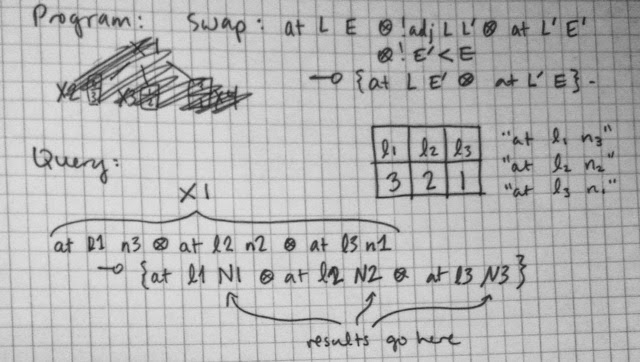 Program: Swap: at L E ⊗ !adj L L' ⊗ at L' E'
⊗ ! E' < E
⊸ {at L E' ⊗ at L' E}.
X1
X2
X3
l1 l2 l3
3 2 1
"at l1 n3"
"at l2 n2"
"at l3 n1"
Query:
X1
at l1 n3 ⊗ at l2 n2 ⊗ at l3 n1
⊸ {at l1 N1 ⊗ at l2 N2 ⊗ at l3 N3}
results go here